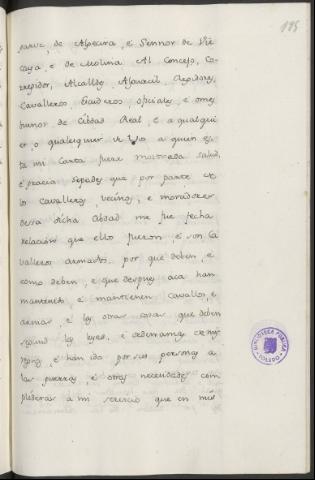 195
garve, de Algecira, e Sennor de Viz
caya, e de Molina Al Concejo, Co-
rregidor, Alcalldes Alguacil Regidores,
Cavalleros, Escuderos, oficiales e omes
buenos de Cibdad Real e a qualqui
er o qualesquier de Vos a quien es-
ta mi Carta fuere mostrada salud,
e gracia Sepades que por parte de
los cavalleros, vecinos, e moradores
dessa dicha Cibdad me fue fecha
relacion que ellos fueron, e son Ca
valleros armados, por que deben, e
como deben, e que despues aca han
mantenido e mantienen cavallos, e
armas, e las otras cosas que deben
segund las leyes, e ordenanzas de mis
Reynos, e han ido por sus personas a
las guerras, e otras necesidades com
plideras a mi servicio que en mis
BIBLIOTECA PÚBLICA
TOLEDO